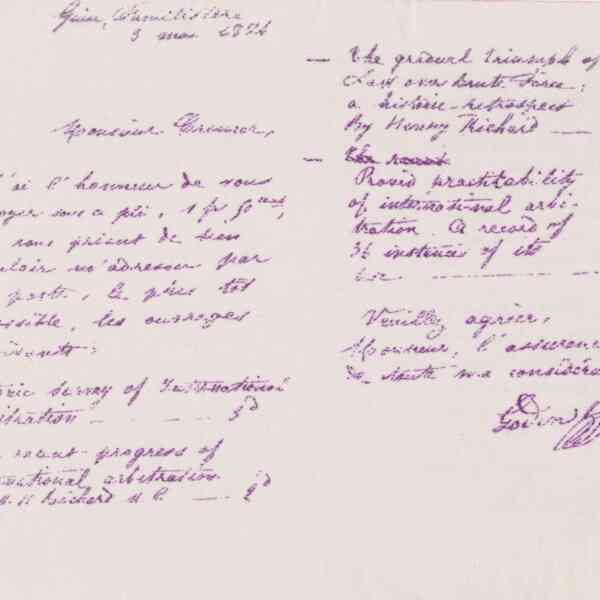 Guise, Familistère
3 mai 188
Monsieur Cremer,
'ai l'honneur de vous
oyer sous ce pli, 1 fr 50
vous priant de bien
uloir m'adresser par
poste, le plus tôt
ossible, les ouvrages
uivants:
oric survey of International
bitration — 3d
recent progress of
rnational arbitration
H Richard M P. — 2d
— The gradual triumph of
Law over brute Force:
a historic-retrospect
By Henry Richard —
— The recent
Provid practability
of international arbi-
tration. A record of
36 instances of its
use.
Veuillez agréer,
Monsieur, l'assurance
de toute ma considéra
Godin